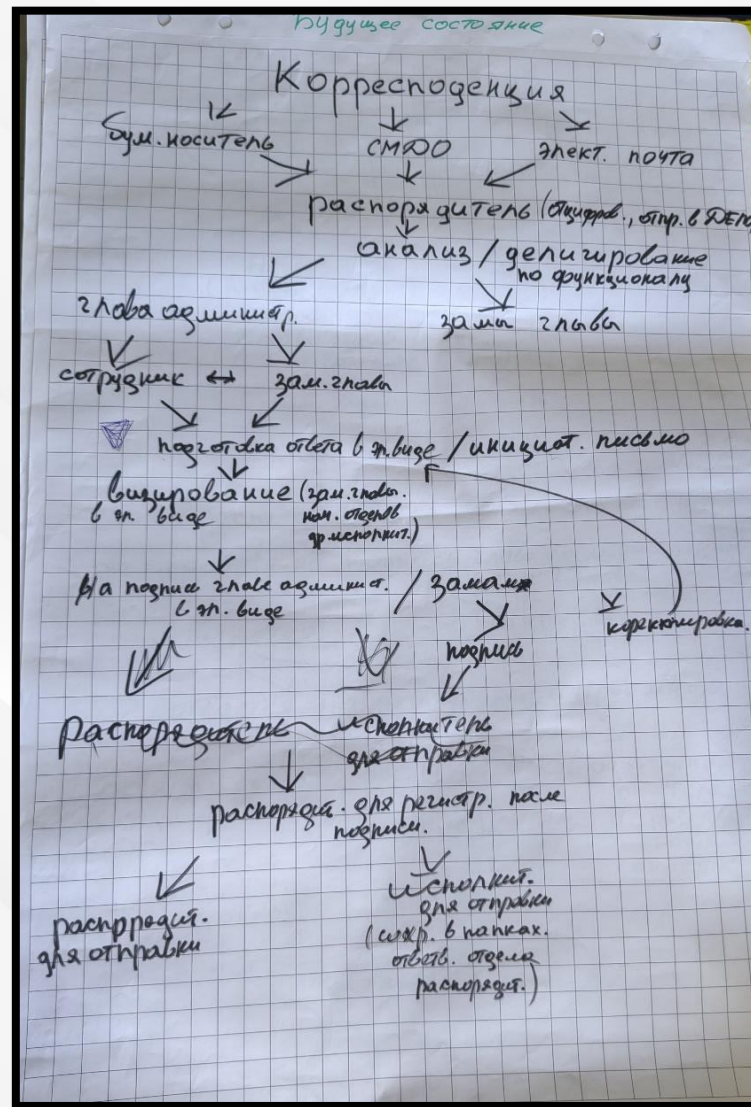 Будущее состояние
Корресподенция
бум. носитель СМДО элект. почта
распорядитель (оцифров., отпр. в ДЕЛО
анализ / делигирование
по функционалу
глава администр. замы главы
сотрудник ↔ зам. главы
подготовка ответа в эл. виде / инициат. письмо
визирование (зам. главы.
в эл. виде нач. отделов
др. исполнит.)
На подпись главе админист. / замам
в эл. виде
подпись корректировка.
Распорядитель исполнитель
для отправки
распорядит. для регистр. после
подписи.
распорядит. исполнит.
для отправки для отправки
(сохр. в папках.
ответв. отдела
распорядит.)